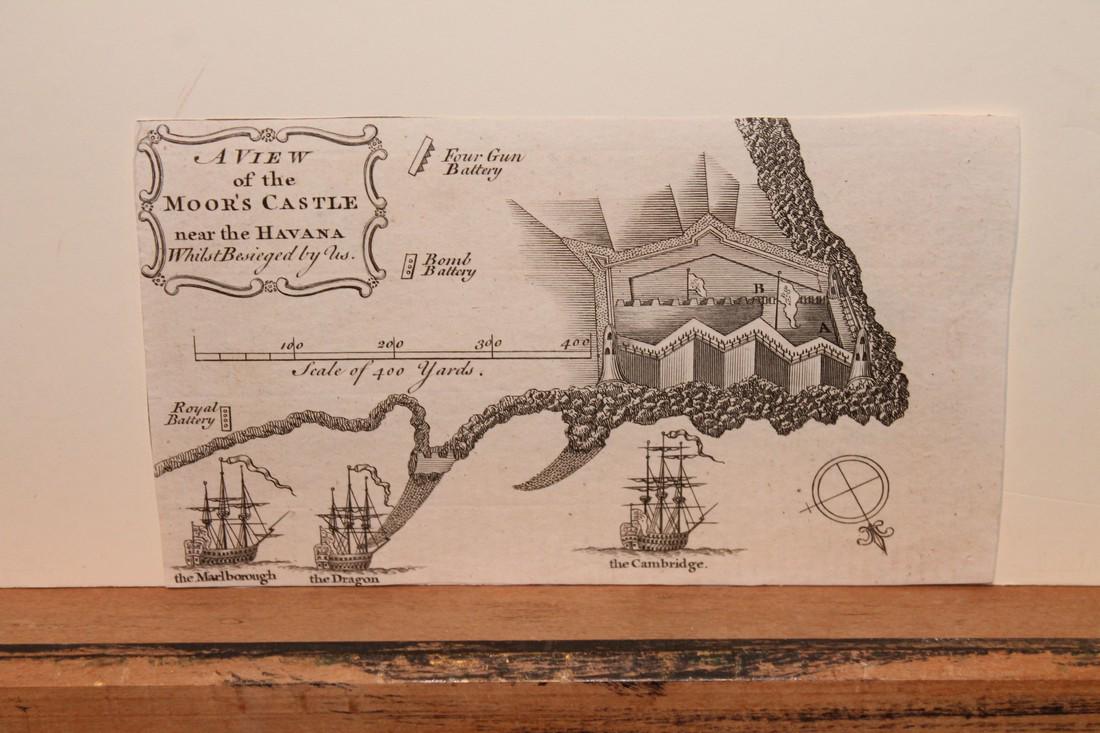 A VIEW
of the
MOOR'S CASTLE
near the HAVANA
Whilst Besieged by Us.
Four Gun
Battery
Bomb
Battery
B
A
100 200 300 400
Scale of 400 Yards.
Royal
Battery
the Marlborough
the Dragon
the Cambridge.